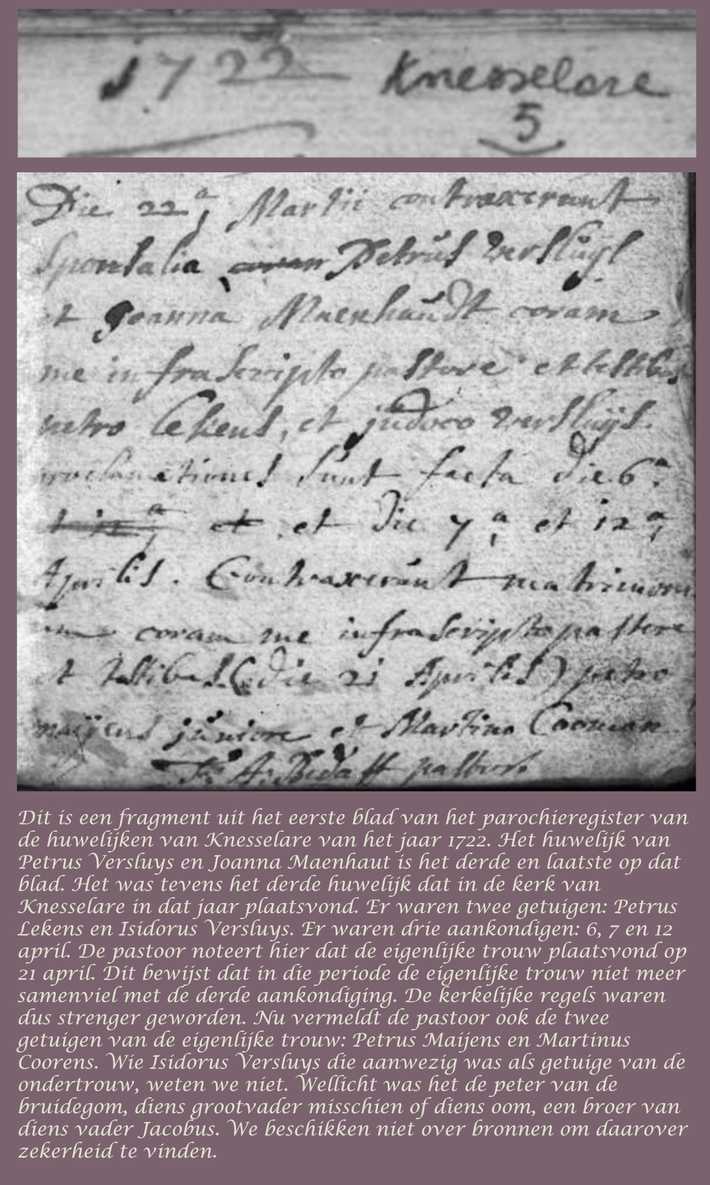 1722 Knesselare
5
Die 22a, Martii contraxerunt
sponsalia Petrus Versluys
et Joanna Maenhaudt coram
me infrascripto pastore et testibus
petro Lekens, et judoco versluijs.
proclamationes sunt facta die 6a
et die 7a, et 12a,
Aprilis. Contraxerunt matrimoni
um coram me infrascripto pastore
et testibus (die 21 Aprilis) petro
maijens juniore et Martino Cooman
pastor.
Dit is een fragment uit het eerste blad van het parochieregister van
de huwelijken van Knesselare van het jaar 1722. Het huwelijk van
Petrus Versluys en Joanna Maenhaut is het derde en laatste op dat
blad. Het was tevens het derde huwelijk dat in de kerk van
Knesselare in dat jaar plaatsvond. Er waren twee getuigen: Petrus
Lekens en Isidorus Versluys. Er waren drie aankondigen: 6, 7 en 12
april. De pastoor noteert hier dat de eigenlijke trouw plaatsvond op
21 april. Dit bewijst dat in die periode de eigenlijke trouw niet meer
samenviel met de derde aankondiging. De kerkelijke regels waren
dus strenger geworden. Nu vermeldt de pastoor ook de twee
getuigen van de eigenlijke trouw: Petrus Maijens en Martinus
Coorens. Wie Isidorus Versluys die aanwezig was als getuige van de
ondertrouw, weten we niet. Wellicht was het de peter van de
bruidegom, diens grootvader misschien of diens oom, een broer van
diens vader Jacobus. We beschikken niet over bronnen om daarover
zekerheid te vinden.